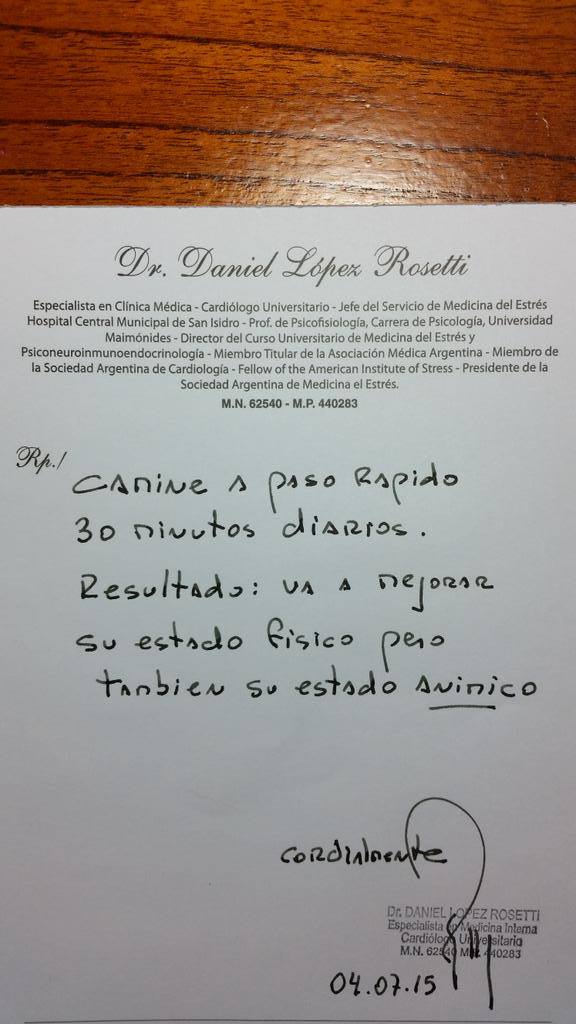 Dr. Daniel López Rosetti
Especialista en Clínica Médica - Cardiólogo Universitario - Jefe del Servicio de Medicina del Estrés
Hospital Central Municipal de San Isidro - Prof. de Psicofisiología, Carrera de Psicología, Universidad
Maimónides - Director del Curso Universitario de Medicina del Estrés y
Psiconeuroinmunoendocrinología - Miembro Titular de la Asociación Médica Argentina - Miembro de
la Sociedad Argentina de Cardiología - Fellow of the American Institute of Stress - Presidente de la
Sociedad Argentina de Medicina el Estrés.
M.N. 62540 - M.P. 440283
Rp./
Camine a paso rapido
30 minutos diarios.
Resultado: va a mejorar
su estado fisico pero
tambien su estado animico
Cordialmente
Dr. DANIEL LOPEZ ROSETTI
Especialista en Medicina Interna
Cardiólogo Universitario
M.N. 62540 M.P. 440283
04.07.15